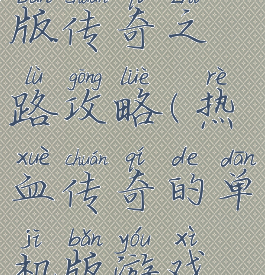 bǎn chuán qí zhī
版传奇之
lù gōng lüè rè
路攻略(热
xuè chuán qí de dān
血传奇的单
jī bǎn yóu xì
机版游戏